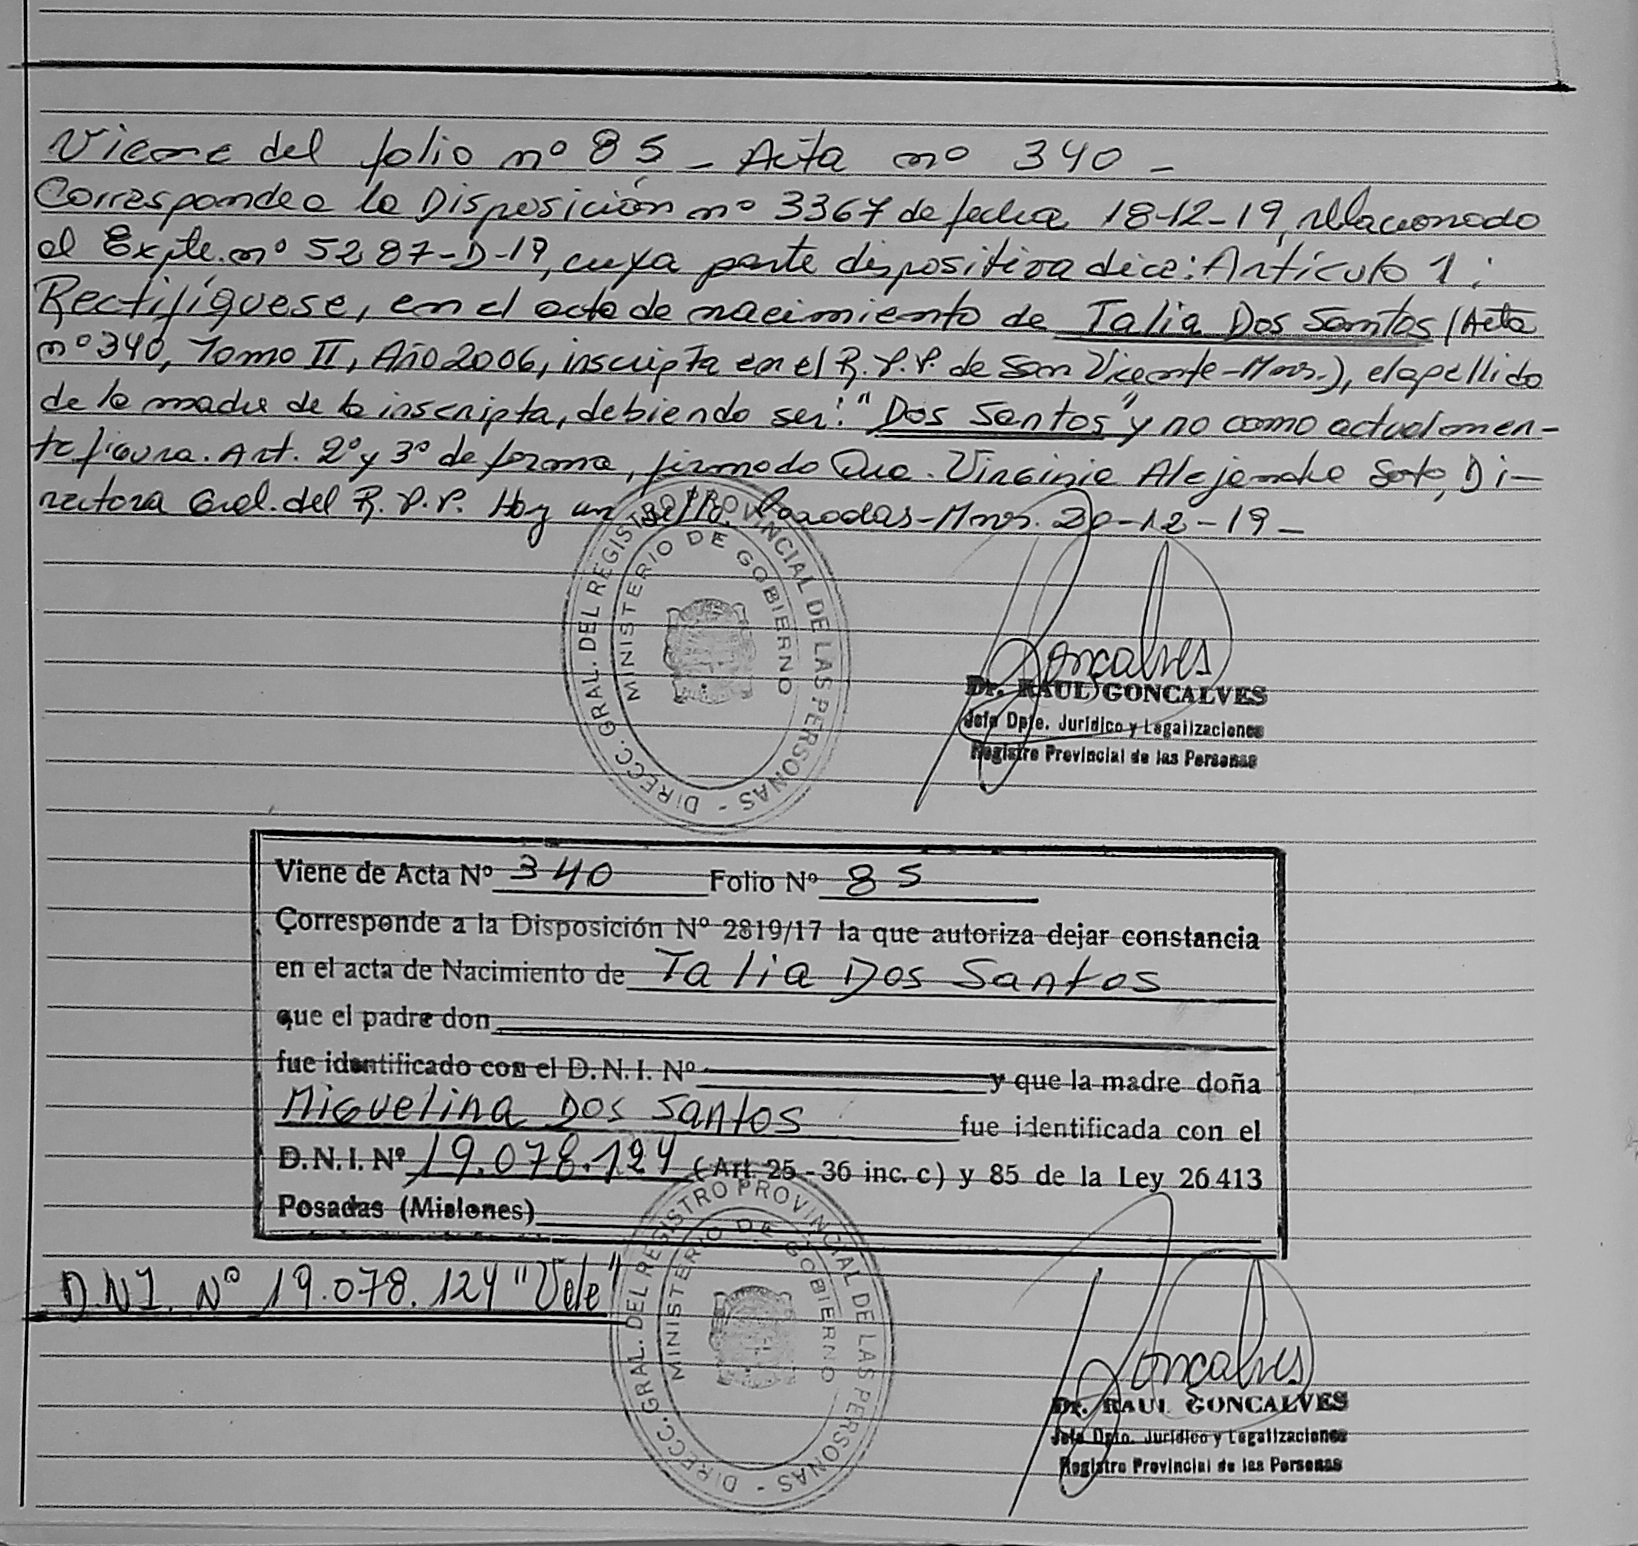 Viene del folio nº 85 - Acta nº 340 -
Corresponde a la Disposición nº 3367 de fecha 18-12-19, relacionado
al Expte. nº 5287-D-19, cuya parte dispositiva dice: Artículo 1:
Rectifíquese, en el acta de nacimiento de Talia Dos Santos (Acta
nº 340, Tomo II, Año 2006, inscripta en el R.P.P. de San Vicente-Mnes.), el apellido
de la madre de la inscripta, debiendo ser: "Dos Santos" y no como actualmen-
te figura. Art. 2º y 3º de forma, firmado Dra. Virginia Alejandra Soto, Di-
rectora Gral. del R.P.P. Hay un sello. Posadas-Mnes. 20-12-19-
DIRECC. GRAL. DEL REGISTRO PROVINCIAL DE LAS PERSONAS -
MINISTERIO DE GOBIERNO
Goncalves
Dr. RAUL GONCALVES
Jefe Dpto. Jurídico y Legalizaciones
Registro Provincial de las Personas
Viene de Acta Nº 340 Folio Nº 85
Corresponde a la Disposición Nº 2819/17 la que autoriza dejar constancia
en el acta de Nacimiento de Talia Dos Santos
que el padre don
fue identificado con el D.N.I. Nº y que la madre doña
Miguelina Dos Santos fue identificada con el
D.N.I. Nº 19.078.124 (Art. 25 - 36 inc. c) y 85 de la Ley 26413
Posadas (Misiones)
D.N.I. Nº 19.078.124 "Vale"
DIRECC. GRAL. DEL REGISTRO PROVINCIAL DE LAS PERSONAS -
MINISTERIO DE GOBIERNO
Goncalves
Dr. RAUL GONCALVES
Jefe Dpto. Jurídico y Legalizaciones
Registro Provincial de las Personas